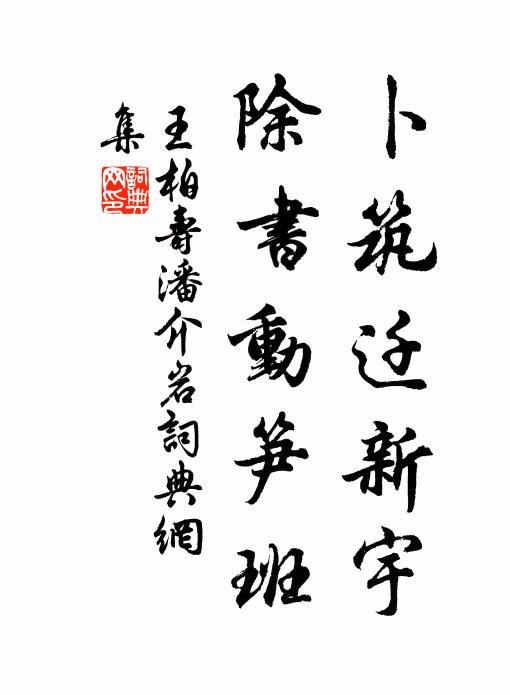 卜筑迁新宇
除書動笋班
王柏壽潘介岩詞典網
集
詞典
网印